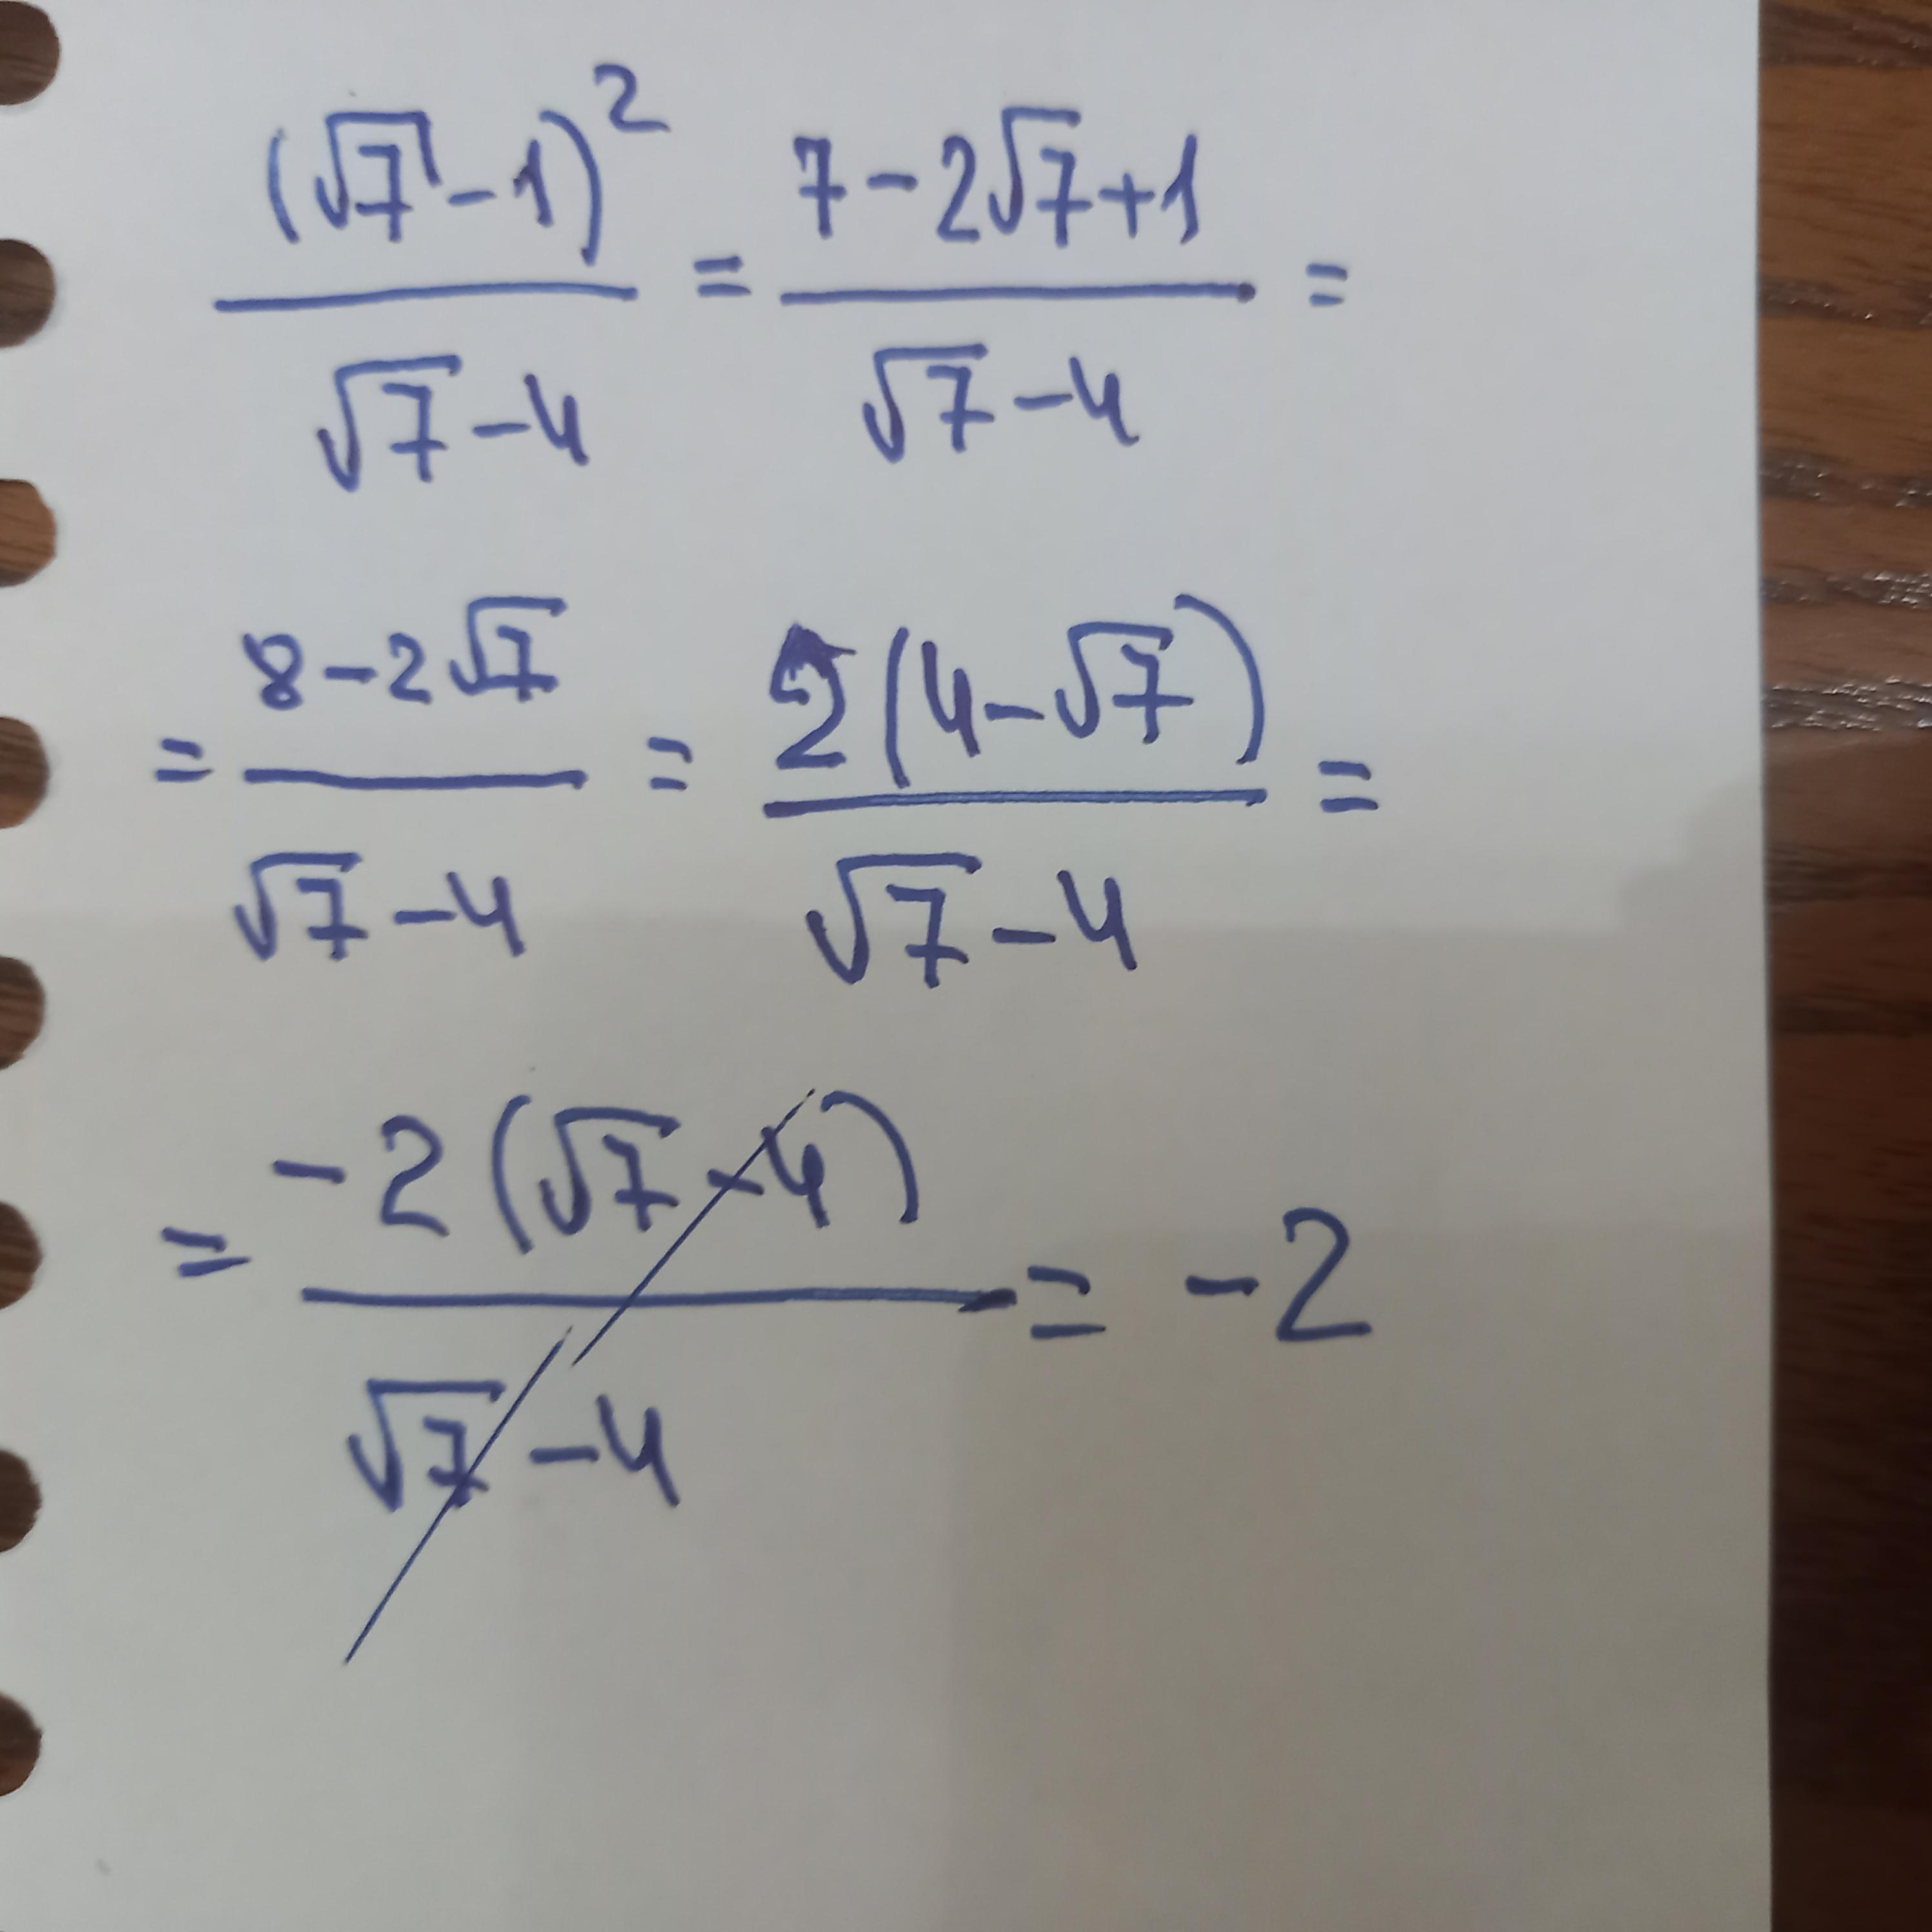 (√7 - 1)² / (√7 - 4) = (7 - 2√7 + 1) / (√7 - 4) =
= (8 - 2√7) / (√7 - 4) = 2(4 - √7) / (√7 - 4) =
= -2(√7 - 4) / (√7 - 4) = -2